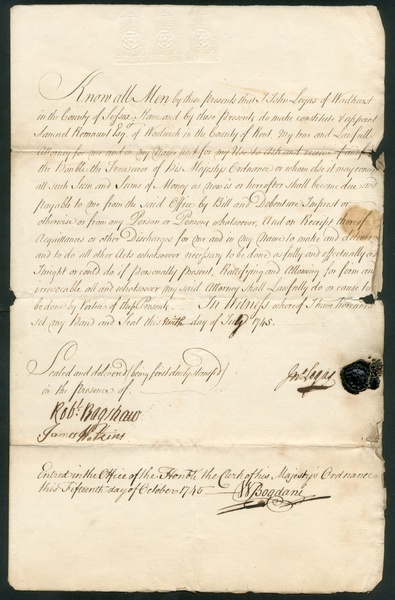 Know all Men by these Presents that I John Legas of Wadhurst
in the County of Sussex Have and by these presents do make constitute & appoint
Samuel Remnant Esqr. of Woolwich in the County of Kent My true and Lawfull
Attorney for me and in my Name and for my Use to Ask and receive of and from
the Honble. the Treasurer of His Majestys Ordnance or whom else it may concern
all such Sum and Sums of Money as now is or hereafter shall become due and
payable to me from the said Office by Bill and Debenture Imprest or
otherwise or from any Person or Persons whatsoever, And on Receipt thereof
Acquittances or other Discharges for me and in my Name to make and deliver
and to do all other Acts whatsoever necessary to be done as fully and effectually as
I might or could do if personally present, Ratifying and Allowing for firm and
irrevocable all and whatsoever my said Attorney Shall Lawfully do or cause to
be done by Vertue of these Presents. In Witness whereof I have hereunto
set my Hand and Seal this Ninth day of July 1745.
Sealed and delivered (being first duly stamp'd)
in the presence of.
Jno. Legas
Robt. Bagshaw
James Watkins
Entred in the Office of the Honble. the Clerk of his Majesty's Ordnance
this Fifteenth day of October 1745
W Bogdani